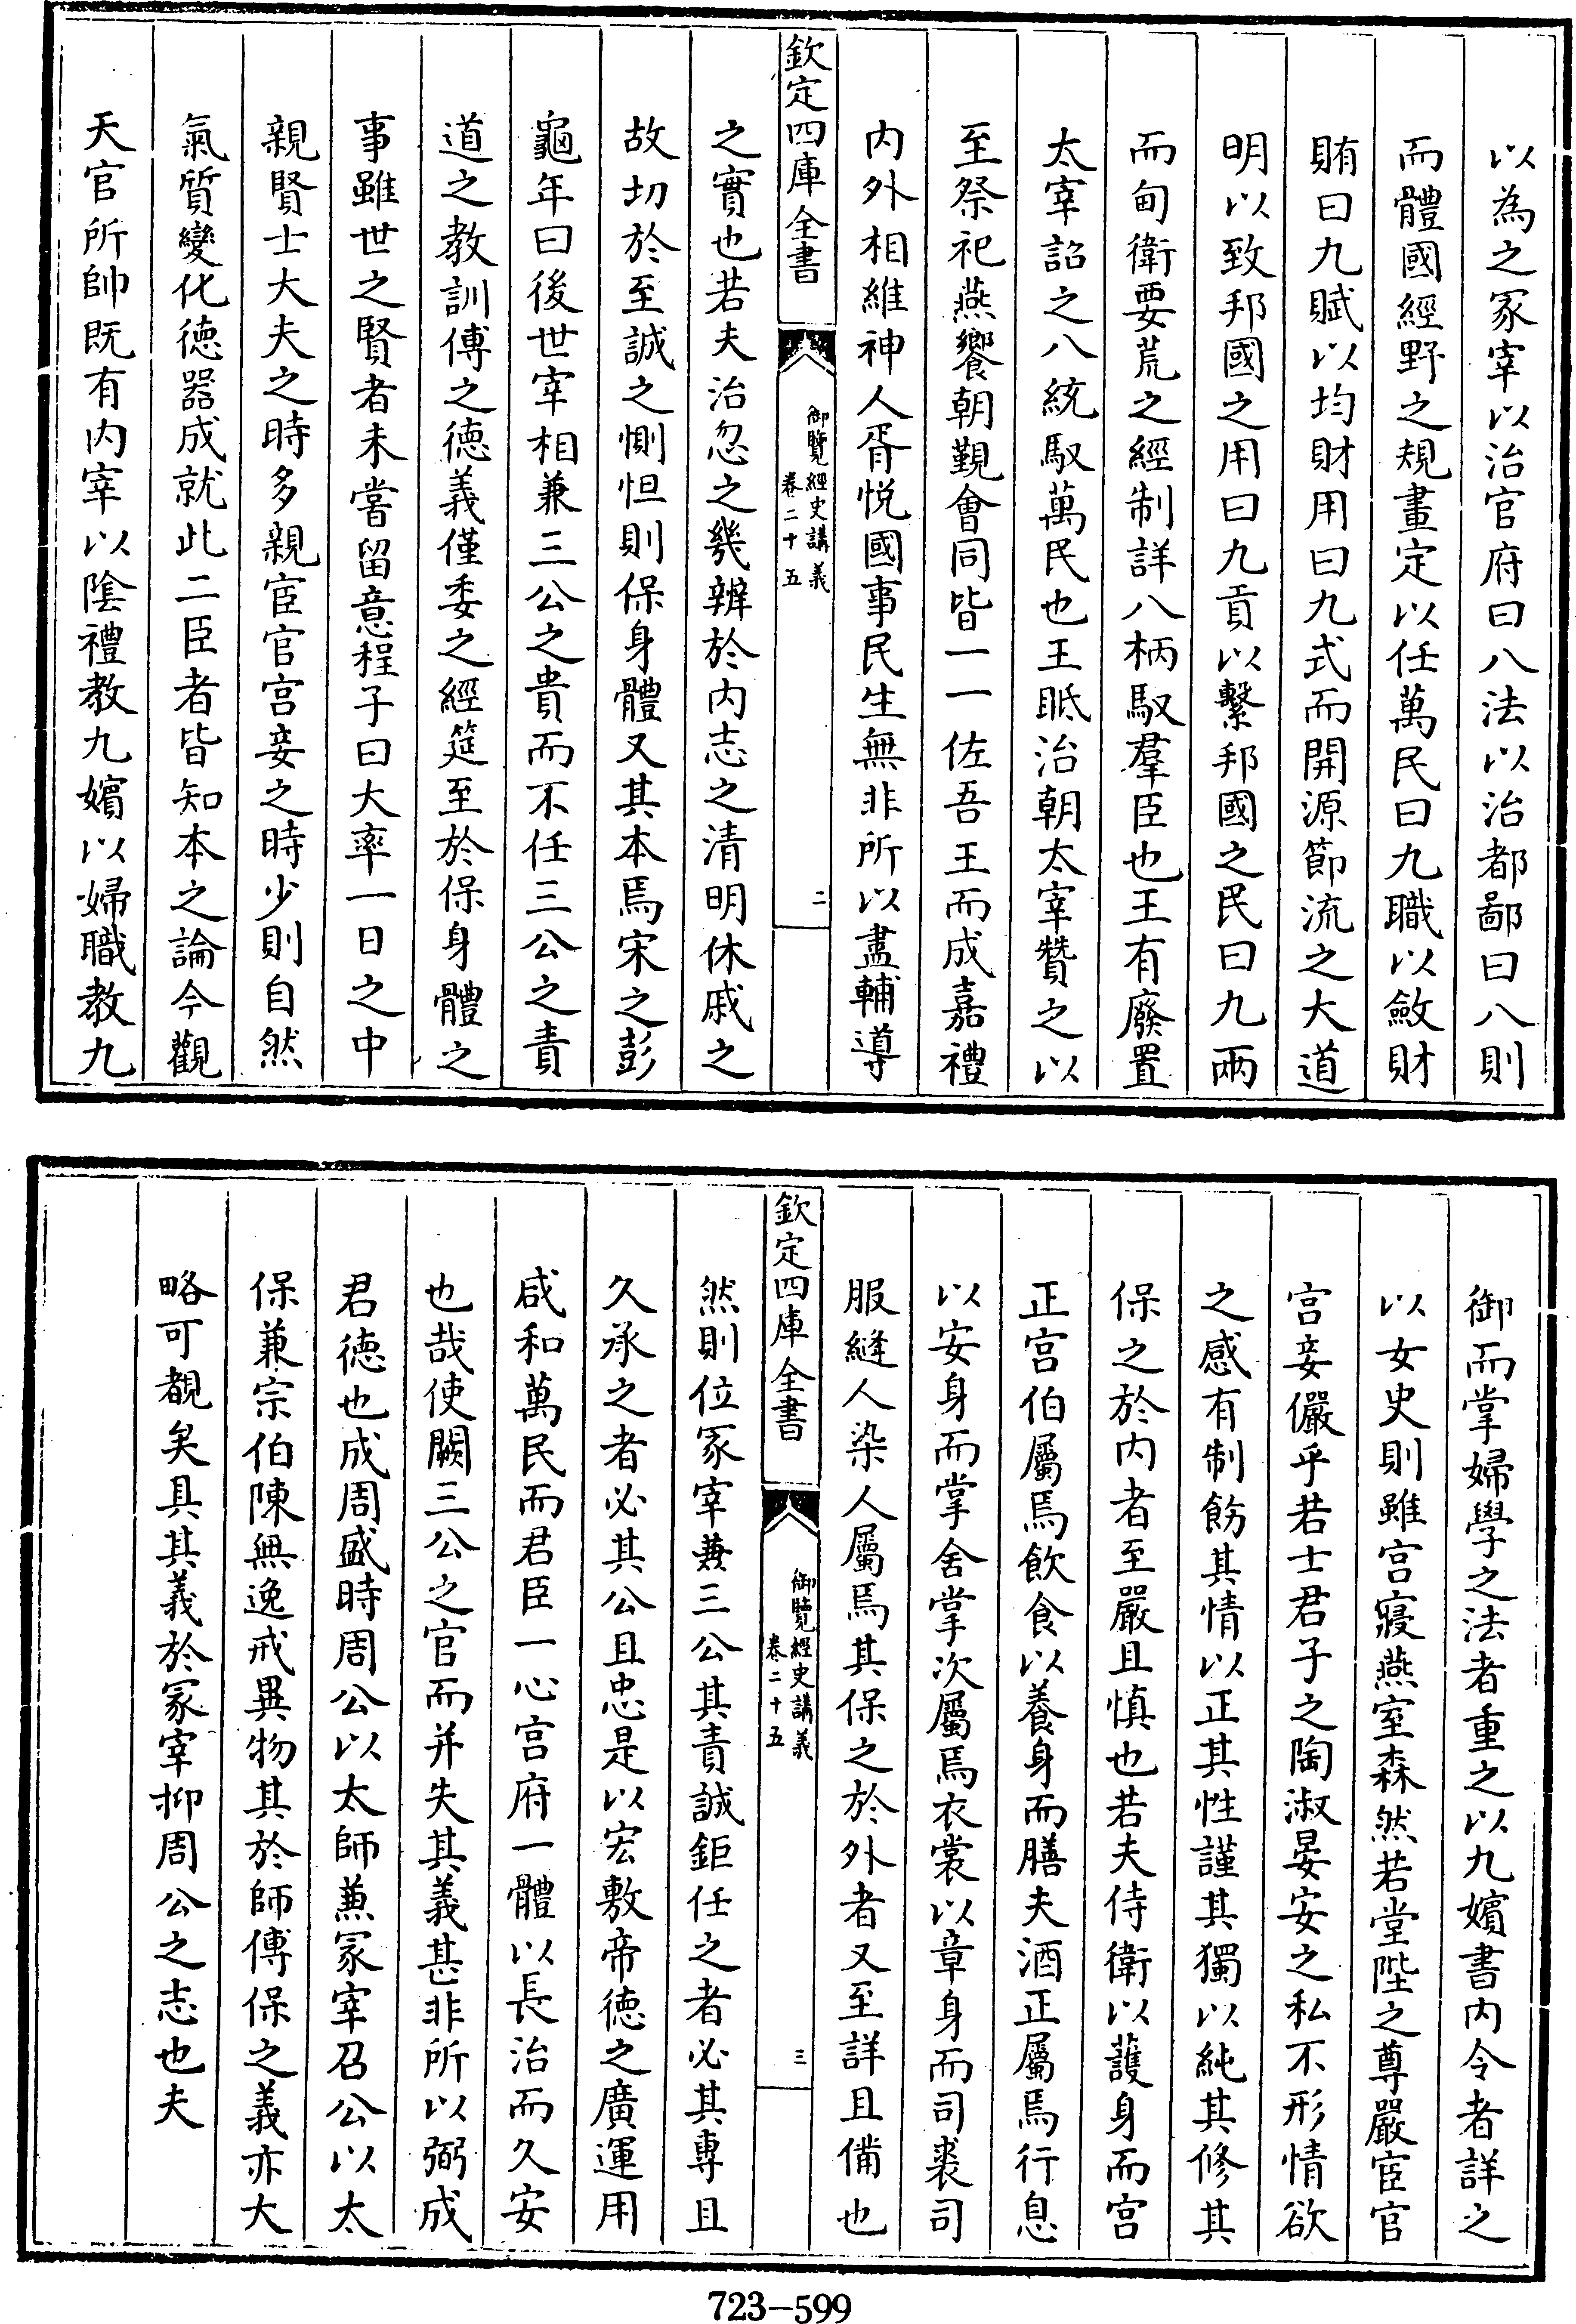 以為之冢宰以治官府曰八法以治都鄙曰八則
而體國經野之規畫定以任萬民曰九職以斂財
賄曰九賦以均財用曰九式而開源節流之大道
明以致邦國之用曰九貢以繫邦國之民曰九兩
而甸衛要荒之經制詳八柄馭羣臣也王有廢置
太宰詔之八統馭萬民也王眂治朝太宰贊之以
至祭祀燕饗朝覲會同皆一一佐吾王而成嘉禮
内外相維神人胥悦國事民生無非所以盡輔導
欽定四庫全書
御覽經史講義
卷二十五
二
之實也若夫治忽之幾辨於内志之清明休戚之
故切於至誠之惻怛則保身體又其本焉宋之彭
龜年曰後世宰相兼三公之貴而不任三公之責
道之教訓傅之徳義僅委之經筵至於保身體之
事雖世之賢者未嘗留意程子曰大率一日之中
親賢士大夫之時多親宦官宫妾之時少則自然
氣質變化徳器成就此二臣者皆知本之論今觀
天官所帥既有内宰以陰禮教九嬪以婦職教九
御而掌婦學之法者重之以九嬪書内令者詳之
以女史則雖宫寢燕室森然若堂陛之尊嚴宦官
宫妾儼乎若士君子之陶淑晏安之私不形情欲
之感有制飭其情以正其性謹其獨以純其修其
保之於内者至嚴且慎也若夫侍衛以䕶身而宫
正宫伯屬焉飲食以養身而膳夫酒正屬焉行息
以安身而掌舍掌次屬焉衣裳以章身而司裘司
服縫人染人屬焉其保之於外者又至詳且備也
欽定四庫全書
御覽經史講義
卷二十五
三
然則位冢宰兼三公其責誠鉅任之者必其專且
久承之者必其公且忠是以宏敷帝徳之廣運用
咸和萬民而君臣一心宫府一體以長治而久安
也哉使闕三公之官而并失其義甚非所以弼成
君徳也成周盛時周公以太師兼冢宰召公以太
保兼宗伯陳無逸戒異物其於師傅保之義亦大
略可覩矣具其義於冢宰抑周公之志也夫
723-599